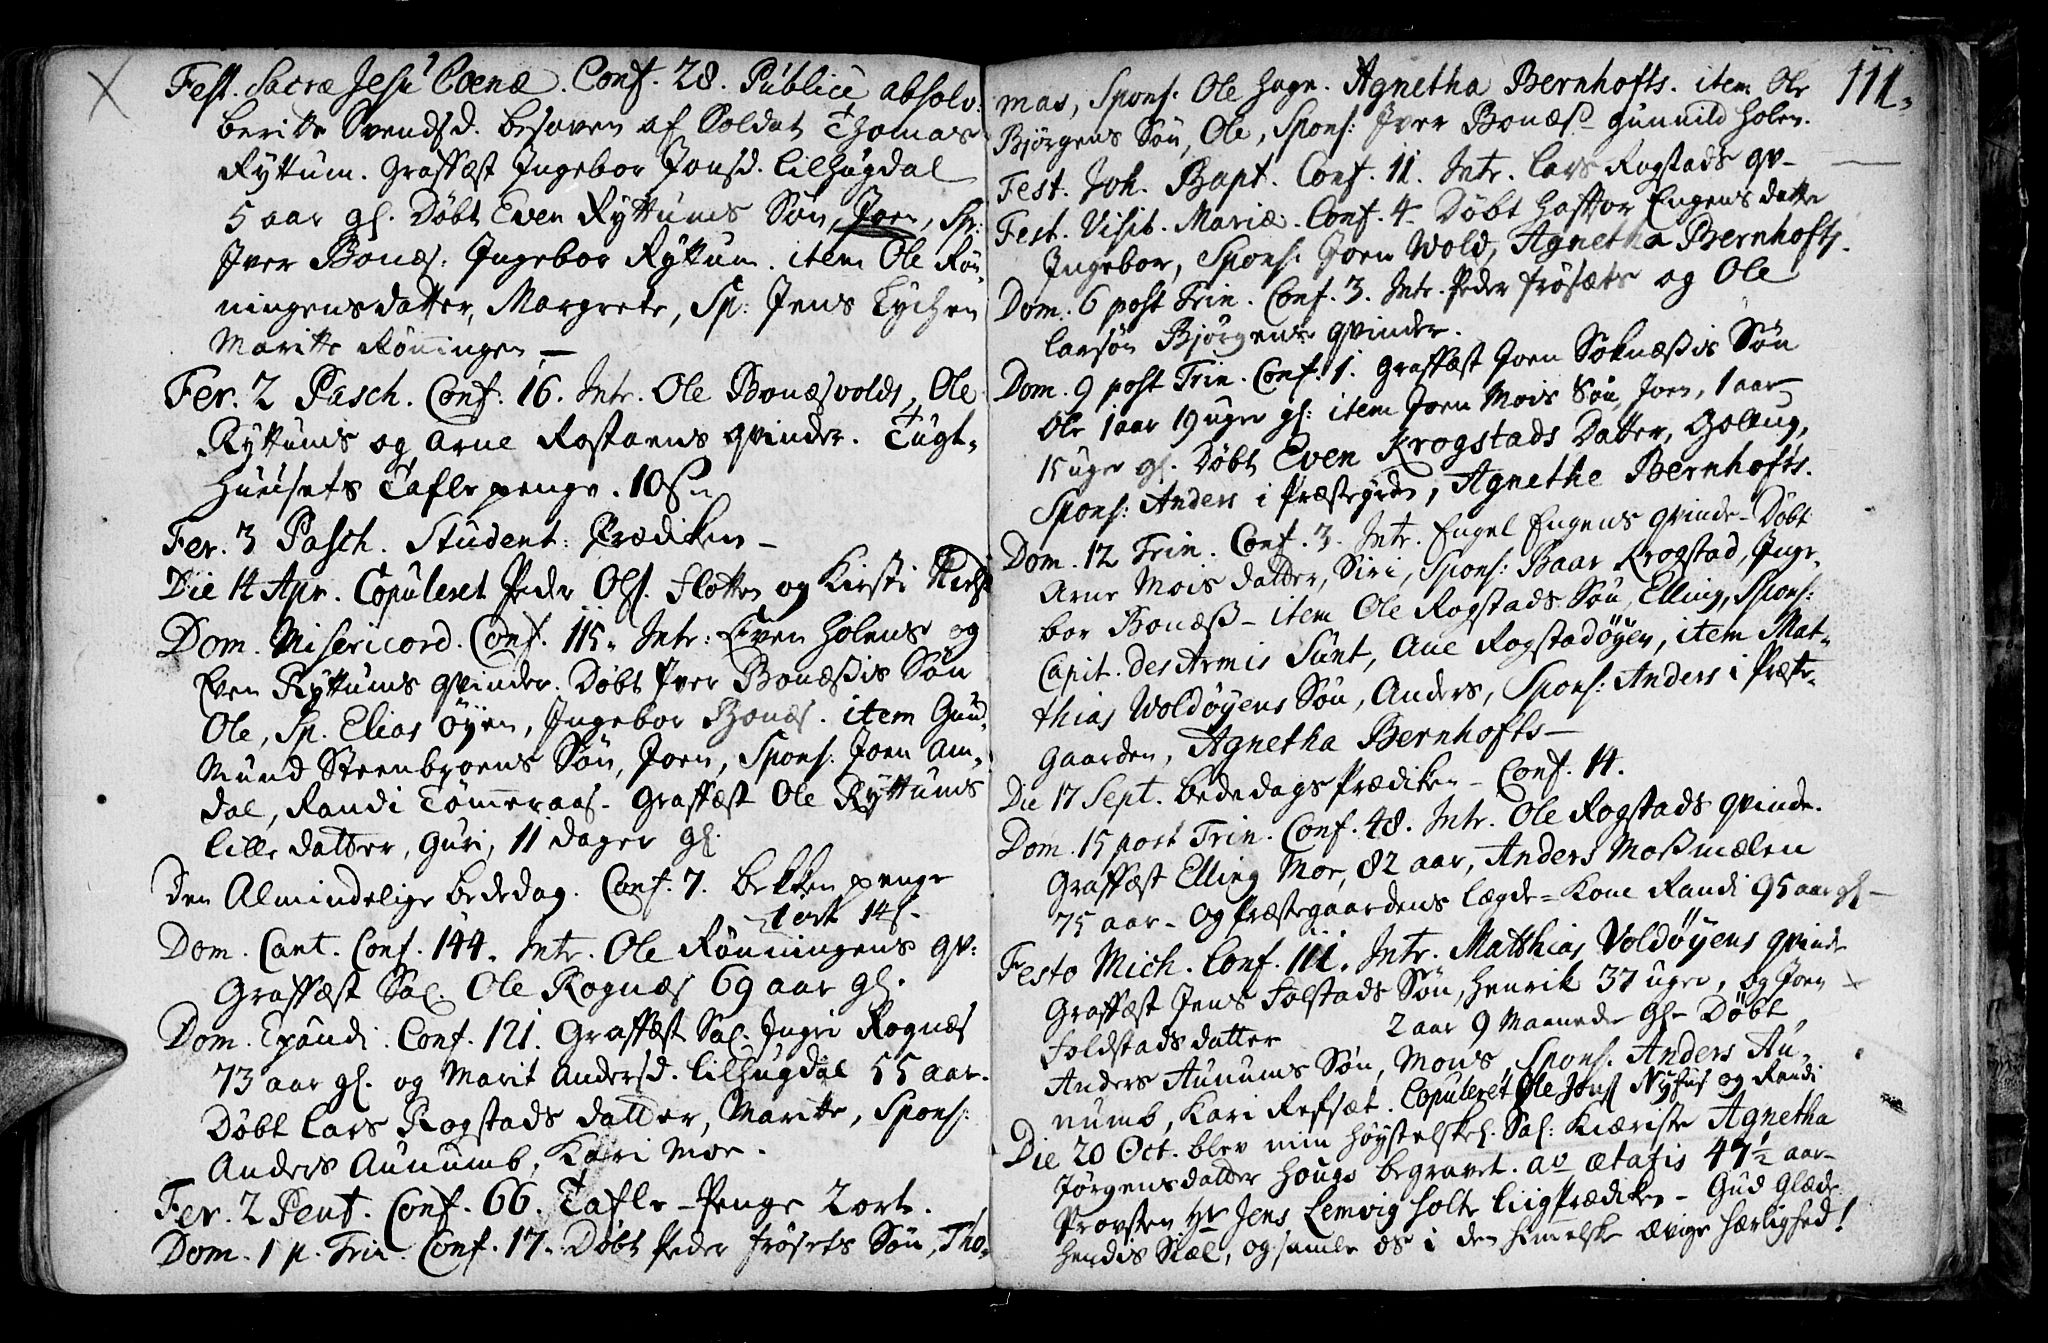 Fest. Sacræ Jesu Coenæ. Conf. 28. Publicè absolv:
beritte Svendsd. besoven af Soldat Thomas
Ryttum. Graffæst Ingebor Jonsd. Lilhugdal
5 aar gl. Døbt Even Ryttums Søn, Joen, Sp:
Iver Bonæs: Ingebor Ryttum. item Ole Røn-
ningens datter, Margrete, Sp: Jens Tychsen
Maritte Rønningen —
Fer. 2 Pasch. Conf. 16. Intr. Ole Bonæsvolds, Ole
Ryttums og Arne Rostaens qvinder. Tugt-
Huusets Tafle penge. 10 s
Fer. 3 Pasch. Student: Prædiken —
Die 14 Apr. Copuleret Peder Ols. Flotten og Kirsti
Dom. Misericord. Conf. 115. Intr: Even Holens og
Even Ryttums qvinder. Døbt Iver Bonæssis Søn
Ole, Sp. Elias Øyen, Ingebor Bonæs. item Gud-
mund Steenbroens Søn, Joen, Spons: Joen Am-
dal, Randi Tømmeraas. Graffæst Ole Ryttums
lille datter, Guri, 11 dager gl.
Den Almindelige bededag. Conf. 7. bekken penge
1 ort 14 s.
Dom. Cant. Conf. 144. Intr. Ole Rønningens qv:
Graffæst Sal. Ole Rognæs 69 aar gl.
Dom. Exaudi. Conf. 121. Graffæst Sal. Ingri Rognæs
73 aar gl. og Marit Andersd. Lilhugdal 55 aar.
Døbt Lars Rogstads datter, Maritte, Spons:
Anders Aunumb, Kari Moe.
Fer. 2 Pent. Conf. 66. Tafle-Penge 2 ort.
Dom. 1 p. Trin. Conf. 17. Døbt Peder Frøsets Søn, Tho-
111.
mas, Spons: Ole Hagn. Agnetha Bernhofts. item Ole
Bjørgens Søn, Ole, Spons: Iver Bonæs – Gunnild Holen.
Fest. Joh. Bapt. Conf. 11. Intr. Lars Rogstads qv–
Fest. Visit. Mariæ. Conf. 4– Døbt Haftor Engens datter
Ingebor, Spons: Joen Wold, Agnetha Bernhofts.
Dom. 6 post Trin. Conf. 3. Intr. Peder Frøsæts og Ole
Larsøn Bjørgens qvinder.
Dom. 9 post Trin. Conf. 1. Graffæst Joen Soknæssis Søn
Ole 1 aar 19 uger gl: item Joen Mois Søn, Joen, 1 aar
15 uger gl. Døbt Even Krogstads Datter, Gollug,
Spons: Anders i Præstegrden, Agnethe Bernhofts.
Dom. 12 Trin. Conf. 3. Intr. Engel Engens qvinde – Døbt
Arne Mois datter, Siri, Spons: Baar Krogstad, Inge-
bor Bonæss – item Ole Rogstads Søn, Elling, Spons:
Capit. des Armis Sunt, Ane Rogstadøyen, item Mat-
thias Woldøyens Søn, Anders, Spons: Anders i Præste-
gaarden, Agnetha Bernhofts –
Die 17 Sept. bededags Prædiken – Conf. 14.
Dom. 15 post Trin. Conf. 48. Intr. Ole Rogstads qvinde.
Graffæst Elling Moe, 82 aar, Anders Mossmælen
75 aar – og Præstegaardens lægde-Kone Randi 95 aar gl –
Festo Mich. Conf. 111. Intr. Matthias Voldøyens qvinde
Graffæst Jens Folstads Søn, Henrik 37 uger, og Joen
Foldstads datter 2 aar 9 Maaneder gl – Døbt
Anders Aunums Søn, Mons, Spons. Anders Au-
numb, Kari Refsæt. Copuleret Ole Jons Nyhus og Randi
Die 20 Oct. blev min Høystelskel. Sal: Kiæriste Agnetha
Jørgensdatter Hougs begravet. aō ætatis 47½ aar –
Provsten Hr Jens Lemvig holte Liigprædiken – Gud Glæde
hendis Siæl, og samle os i den himelske ævige Herlighed!